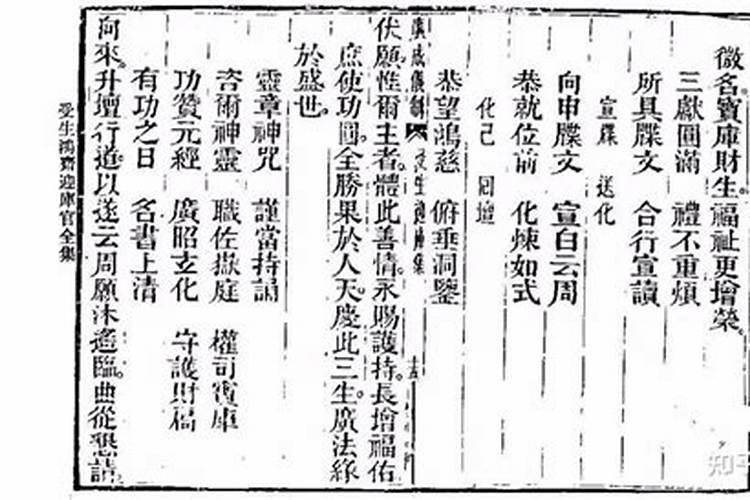 微名寶庫財生。福祉更增榮。
三獻圓滿　禮不重煩
所具牒文　合行宣讀
宣牒　送化
向申牒文　宣白云周
恭就位前　化煉如式
化已　回壇
恭望鴻慈　俯垂洞鑒
廣成儀制　受生
伏願惟爾主者。體此善情。永賜護持。長增福佑
庶使功圓。全勝果於人天。慶此三生。廣法緣
於盛世。
靈章神咒　謹當持誦
咨爾神靈　職佐嶽庭　權司寶庫
功贊元經　廣昭玄化　守護財福
有功之日　名書上清
向來。升壇行道。以遂云周。願沐遙臨。曲從懇請。
受生鴻齋迎庫官全集
知乎